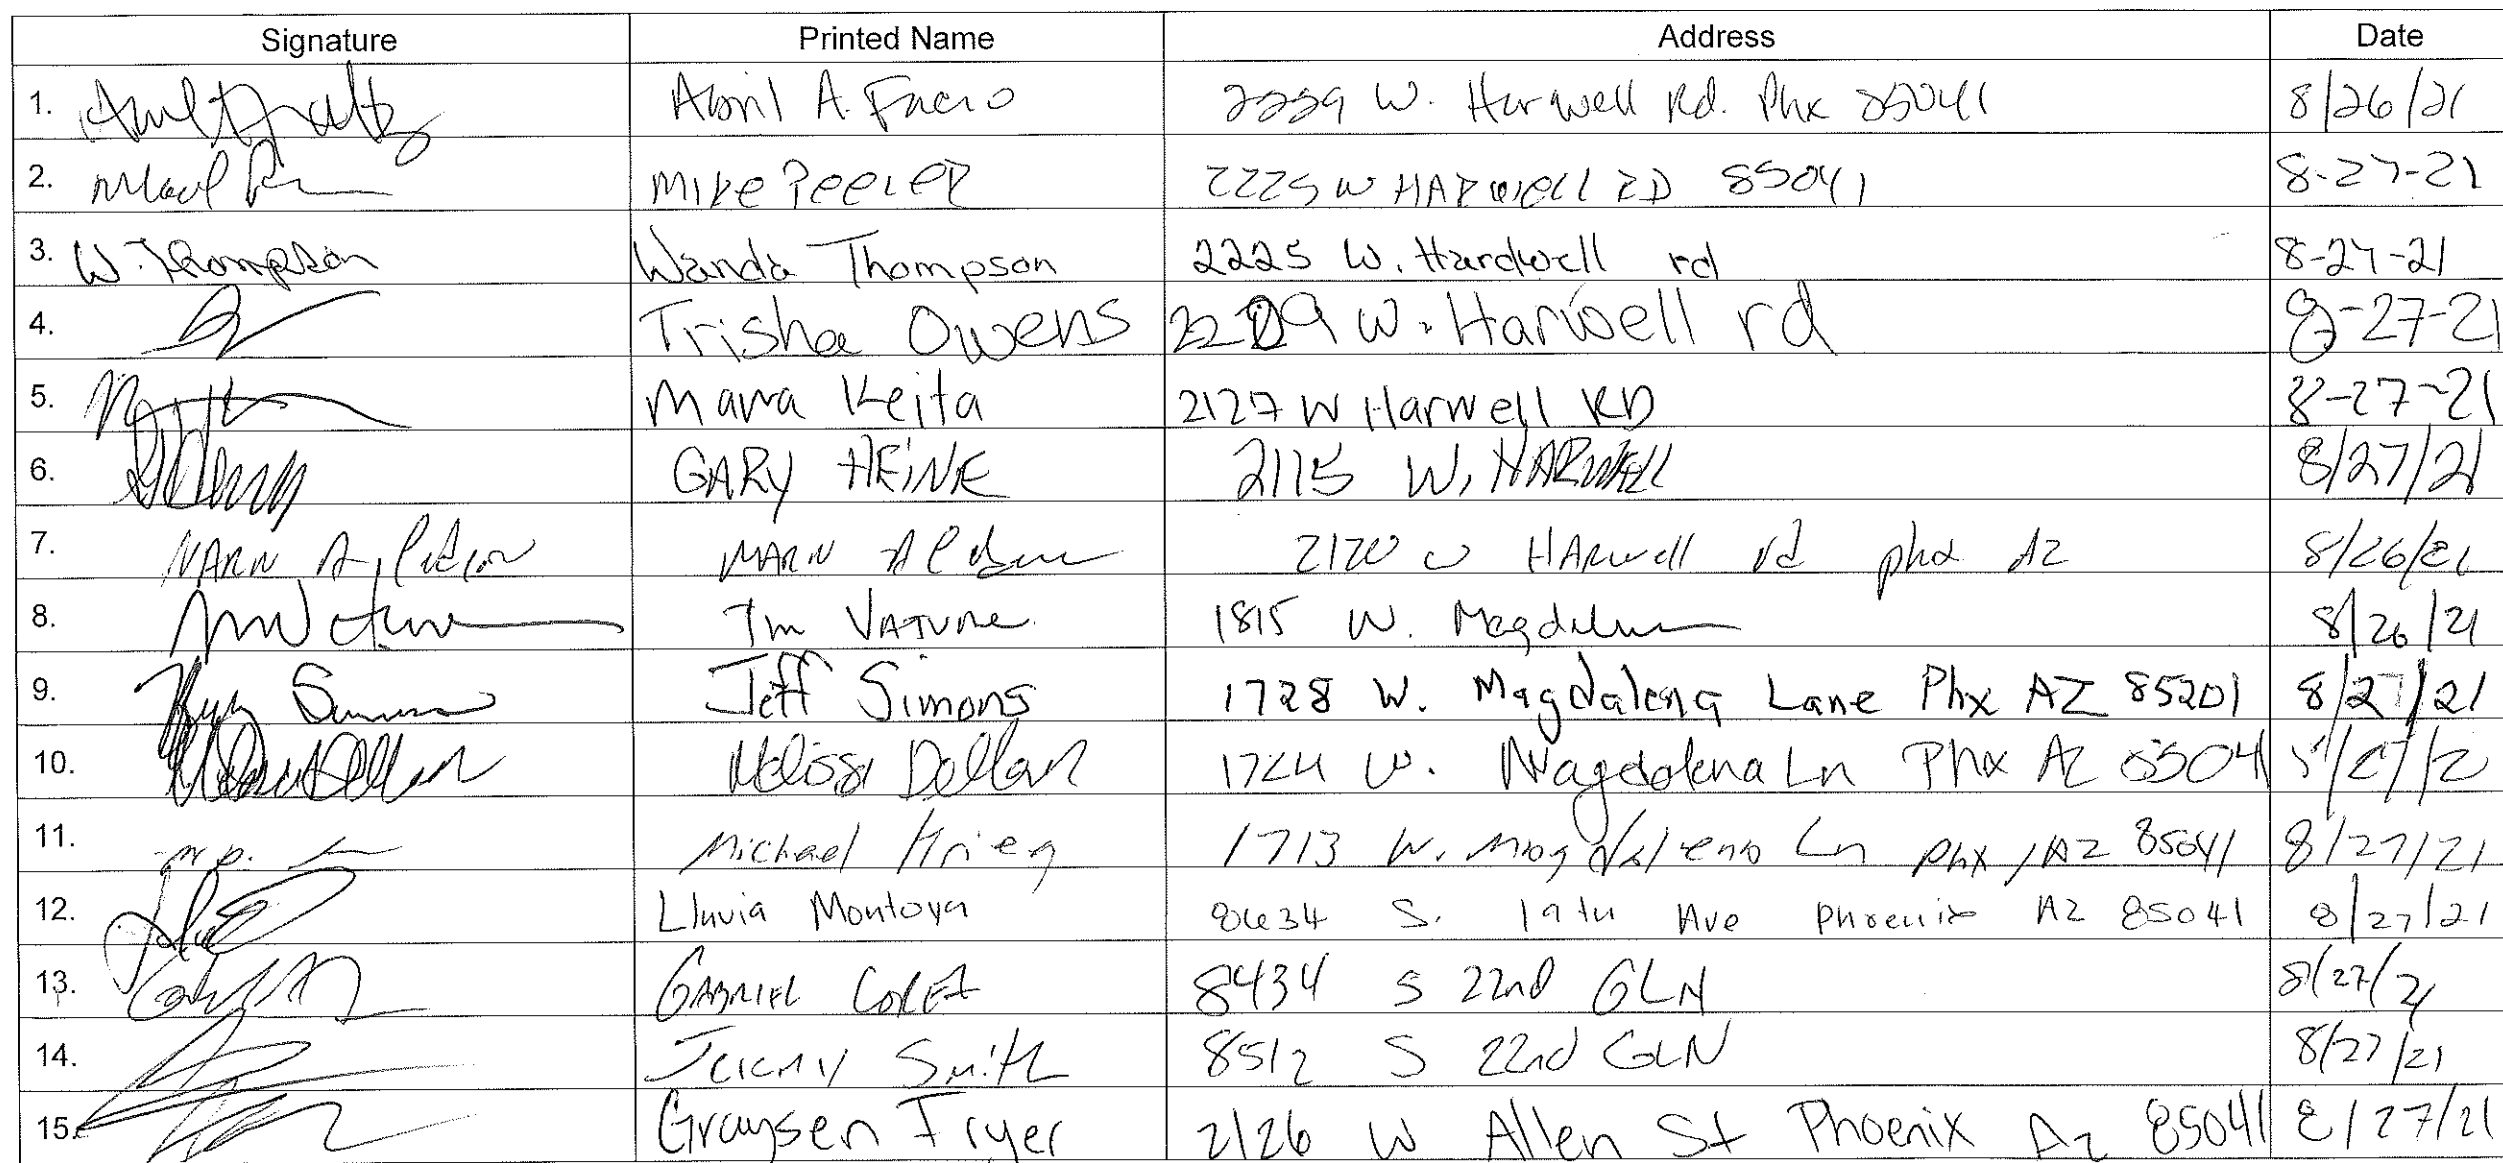 Signature Printed Name Address Date
1. Abril A. Facio 2229 W. Harwell Rd. Phx 85041 8/26/21
2. MIKE PEELER 2225 W HARWELL RD 85041 8-27-21
3. W. Thompson Wanda Thompson 2225 W. Hardwell rd 8-27-21
4. Trisha Owens 2209 W. Harwell rd 8-27-21
5. Mawa Keita 2127 W Harwell RD 8-27-21
6. GARY HEINK 2115 W. HARWELL 8/27/21
7. MARN A 2120 W HARWell rd phx AZ 8/26/21
8. Tim VATUNE 1815 W. 8/26/21
9. Jeff Simons 1728 W. Magdalena Lane Phx AZ 85201 8/27/21
10. Melissa Dollar 1724 W. Magdalena Ln Phx AZ 85041 8/27/2
11. Michael Krieg 1713 W. Magdaleno Ln Phx, AZ 85041 8/27/21
12. Lluvia Montoya 8634 S. 19th Ave Phoenix AZ 85041 8/27/21
13. GABRIEL 8434 S 22nd GLN 8/27/21
14. Jeremy Smith 8512 S 22nd GLN 8/27/21
15. Graysen Fryer 2126 W Allen St Phoenix Az 85041 8/27/21